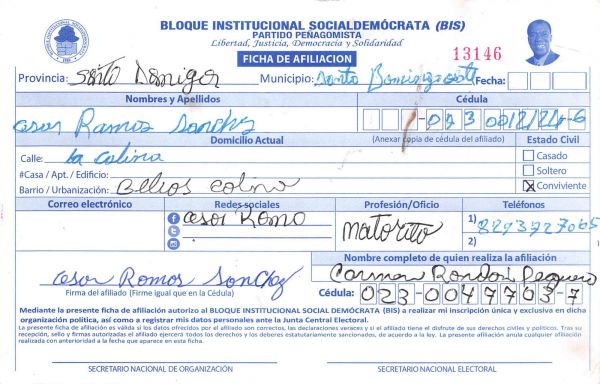 BLOQUE INSTITUCIONAL SOCIALDEMÓCRATA (BIS)
PARTIDO PEÑAGOMISTA
Libertad, Justicia, Democracia y Solidaridad
FICHA DE AFILIACION
13146
Provincia: Santo Domingo Municipio: Santo Domingo este Fecha:
Nombres y Apellidos Cédula
cesar Ramos Sanchez 023
Domicilio Actual (Anexar copia de cédula del afiliado) Estado Civil
Calle: La Colina
Casado
#Casa / Apt. / Edificio: Soltero
Barrio / Urbanización: Colina X Conviviente
Correo electrónico Redes sociales Profesión/Oficio Teléfonos
cesar Ramo
1) 829 3727065
2)
Nombre completo de quien realiza la afiliación
cesar Ramos Sanchez Carmen Rondon Peguero
Firma del afiliado (Firme igual que en la Cédula) Cédula: 023-0047703-7
Mediante la presente ficha de afiliación autorizo al BLOQUE INSTITUCIONAL SOCIAL DEMÓCRATA (BIS) a realizar mi inscripción única y exclusiva en dicha
organización política, así como a registrar mis datos personales ante la Junta Central Electoral.
La presente ficha de afiliación es válida si los datos ofrecidos por el afiliado son correctos, las declaraciones veraces y si el afiliado tiene el disfrute de sus derechos civiles y políticos. Tras su
recepción, sello y firmas autorizadas el afiliado ejercerá todos los derechos y los deberes estatutariamente sancionados, de acuerdo a la ley. La presente afiliación anula cualquier afiliación
realizada con anterioridad a la fecha que aparece en esta ficha.
SECRETARIO NACIONAL DE ORGANIZACIÓN SECRETARIO NACIONAL ELECTORAL